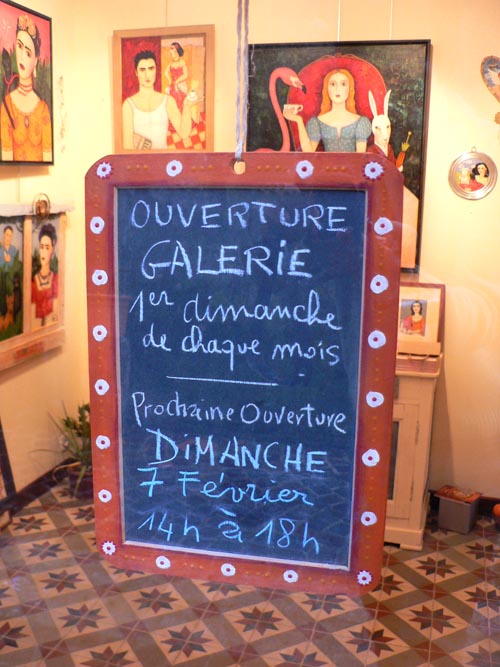 OUVERTURE
GALERiE
1er dimanche
de chaque mois
Prochaine Ouverture
DiMANCHE
7 Février
14h à 18h